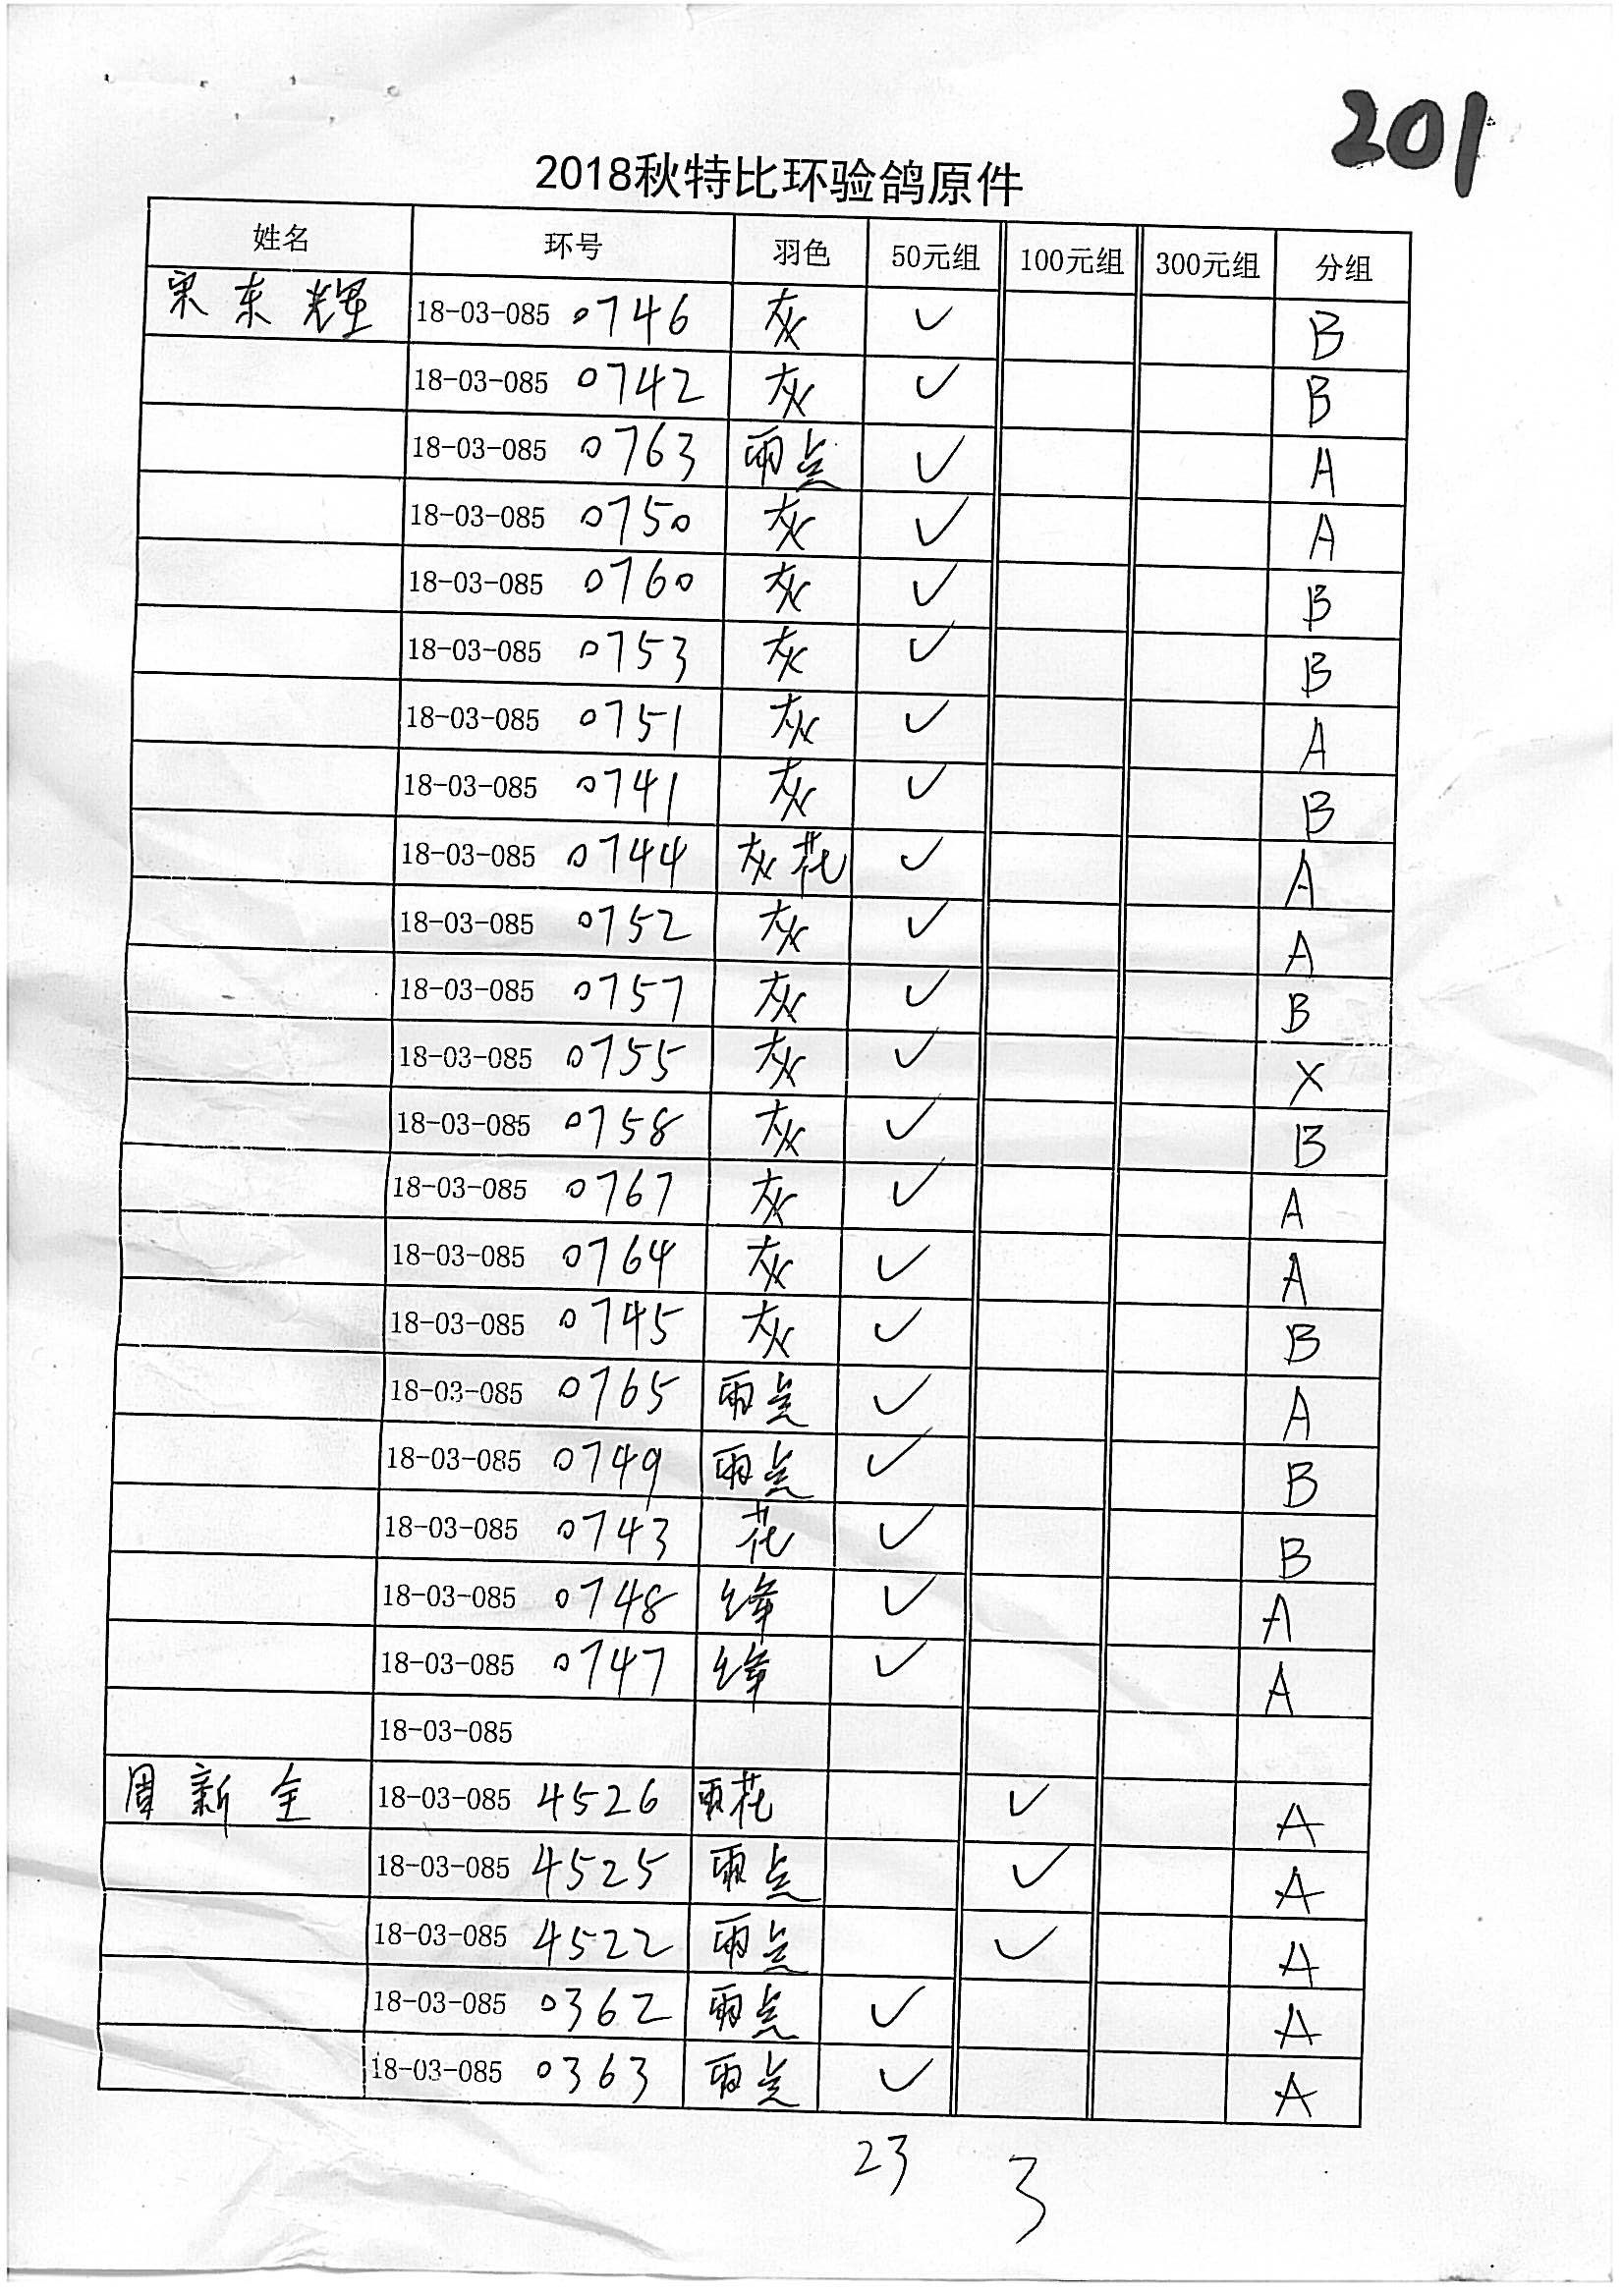 201
2018秋特比环验鸽原件
姓名 环号 羽色 50元组 100元组 300元组 分组
栗东辉 18-03-085 0746 灰 ✓ B
18-03-085 0742 灰 ✓ B
18-03-085 0763 雨点 ✓ A
18-03-085 0750 灰 ✓ A
18-03-085 0760 灰 ✓ B
18-03-085 0753 灰 ✓ B
18-03-085 0751 灰 ✓ A
18-03-085 0741 灰 ✓ B
18-03-085 0744 灰花 ✓ A
18-03-085 0752 灰 ✓ A
18-03-085 0757 灰 ✓ B
18-03-085 0755 灰 ✓ X
18-03-085 0758 灰 ✓ B
18-03-085 0767 灰 ✓ A
18-03-085 0764 灰 ✓ A
18-03-085 0745 灰 ✓ B
18-03-085 0765 雨点 ✓ A
18-03-085 0749 雨点 ✓ B
18-03-085 0743 花 ✓ B
18-03-085 0748 绛 ✓ A
18-03-085 0747 绛 ✓ A
18-03-085
周新全 18-03-085 4526 雨花 ✓ A
18-03-085 4525 雨点 ✓ A
18-03-085 4522 雨点 ✓ A
18-03-085 0362 雨点 ✓ A
18-03-085 0363 雨点 ✓ A
23 3